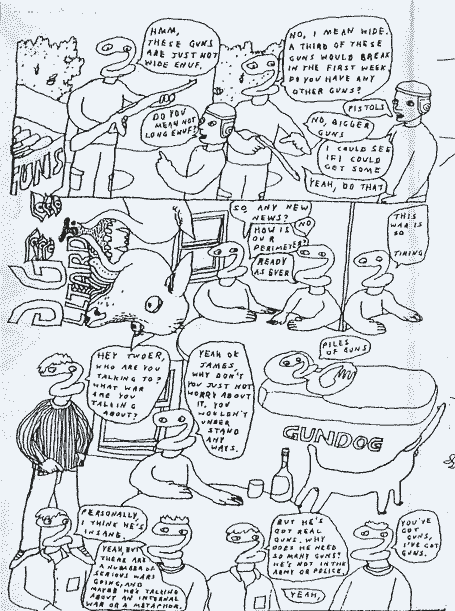 HMM,
THESE GUNS
ARE JUST NOT
WIDE ENUF.
DO YOU
MEAN NOT
LONG ENUF?
NO, I MEAN WIDE.
A THIRD OF THESE
GUNS WOULD BREAK
IN THE FIRST WEEK.
DO YOU HAVE ANY
OTHER GUNS?
PISTOLS
NO, BIGGER
GUNS
I COULD SEE
IF I COULD
GET SOME
YEAH, DO THAT
GUNS
SO, ANY NEW
NEWS?
NO
HOW IS
OUR
PERIMETER?
READY
AS EVER
THIS
WAR IS
SO
TIRING
HEY TWOER,
WHO ARE YOU
TALKING TO?
WHAT WAR
ARE YOU
TALKING
ABOUT?
YEAH OK
JAMES,
WHY DON'T
YOU JUST NOT
WORRY ABOUT
IT, YOU
WOULDN'T
UNDER
STAND
ANY
WAYS.
PILES
OF GUNS
GUNDOG
PERSONALLY,
I THINK HE'S
INSANE.
YEAH, BUT
THERE ARE
A NUMBER OF
SERIOUS WARS
GOING, AND
MAYBE HE'S TALKING
ABOUT AN INTERNAL
WAR OR A METAPHOR.
BUT HE'S
GOT REAL
GUNS. WHY
DOES HE NEED
SO MANY GUNS?
HE'S NOT IN THE
ARMY OR POLICE.
YEAH,
YOU'VE
GOT
GUNS,
I'VE GOT
GUNS.